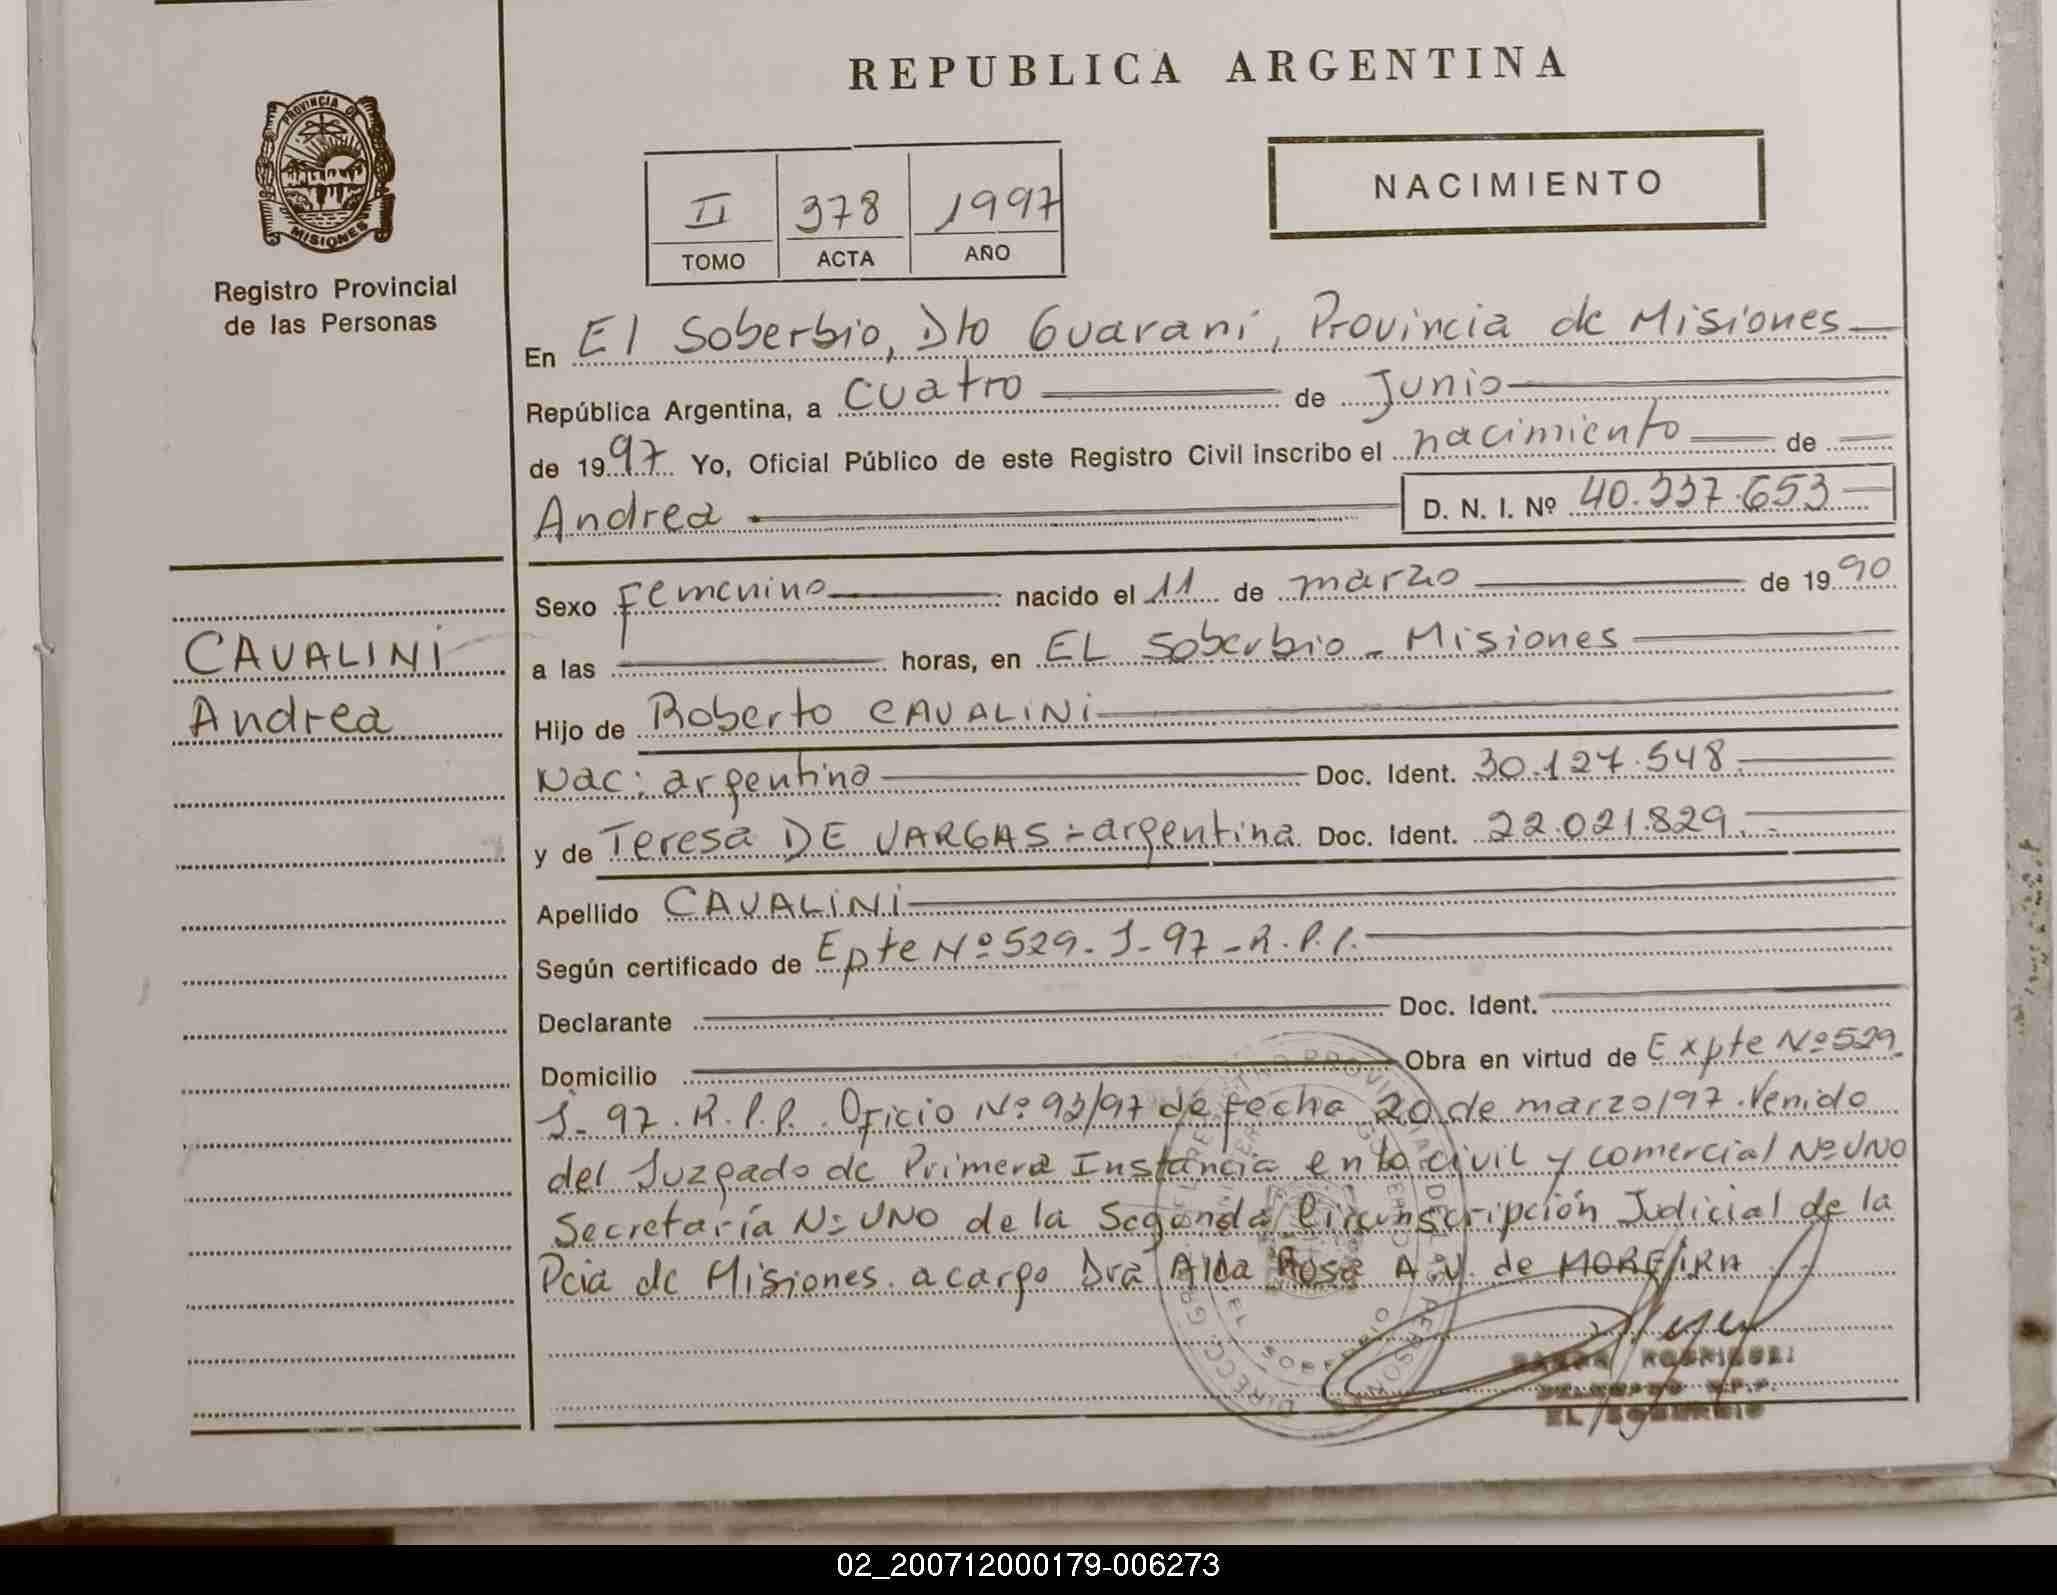 REPUBLICA ARGENTINA
PROVINCIA DE
MISIONES
Registro Provincial
de las Personas
II 378 1997
TOMO ACTA AÑO
NACIMIENTO
En El Soberbio, Dto Guaraní, Provincia de Misiones
República Argentina, a cuatro de Junio
de 1997 Yo, Oficial Público de este Registro Civil inscribo el nacimiento de
Andrea D. N. I. Nº 40.337.653
CAVALINI
Andrea
Sexo Femenino nacido el 11 de marzo de 1990
a las horas, en EL Soberbio - Misiones
Hijo de Roberto CAVALINI
Nac: argentina Doc. Ident. 30.127.548.
y de Teresa DE VARGAS - argentina Doc. Ident. 22.021.829.
Apellido CAVALINI
Según certificado de Epte Nº 529-J-97-R.P.P.
Declarante Doc. Ident.
Domicilio Obra en virtud de Expte Nº 529
J-97.R.P.P. Oficio Nº 93/97 de fecha 20 de marzo/97. Venido
del Juzgado de Primera Instancia en lo civil y comercial Nº UNO
Secretaría Nº UNO de la Segunda Circunscripción Judicial de la
Pcia de Misiones. a cargo Dra Alda Rosa A.V. de MOREIRA
EL SOBERBIO
RODRIGUEZ
EL SOBERBIO
02_200712000179-006273